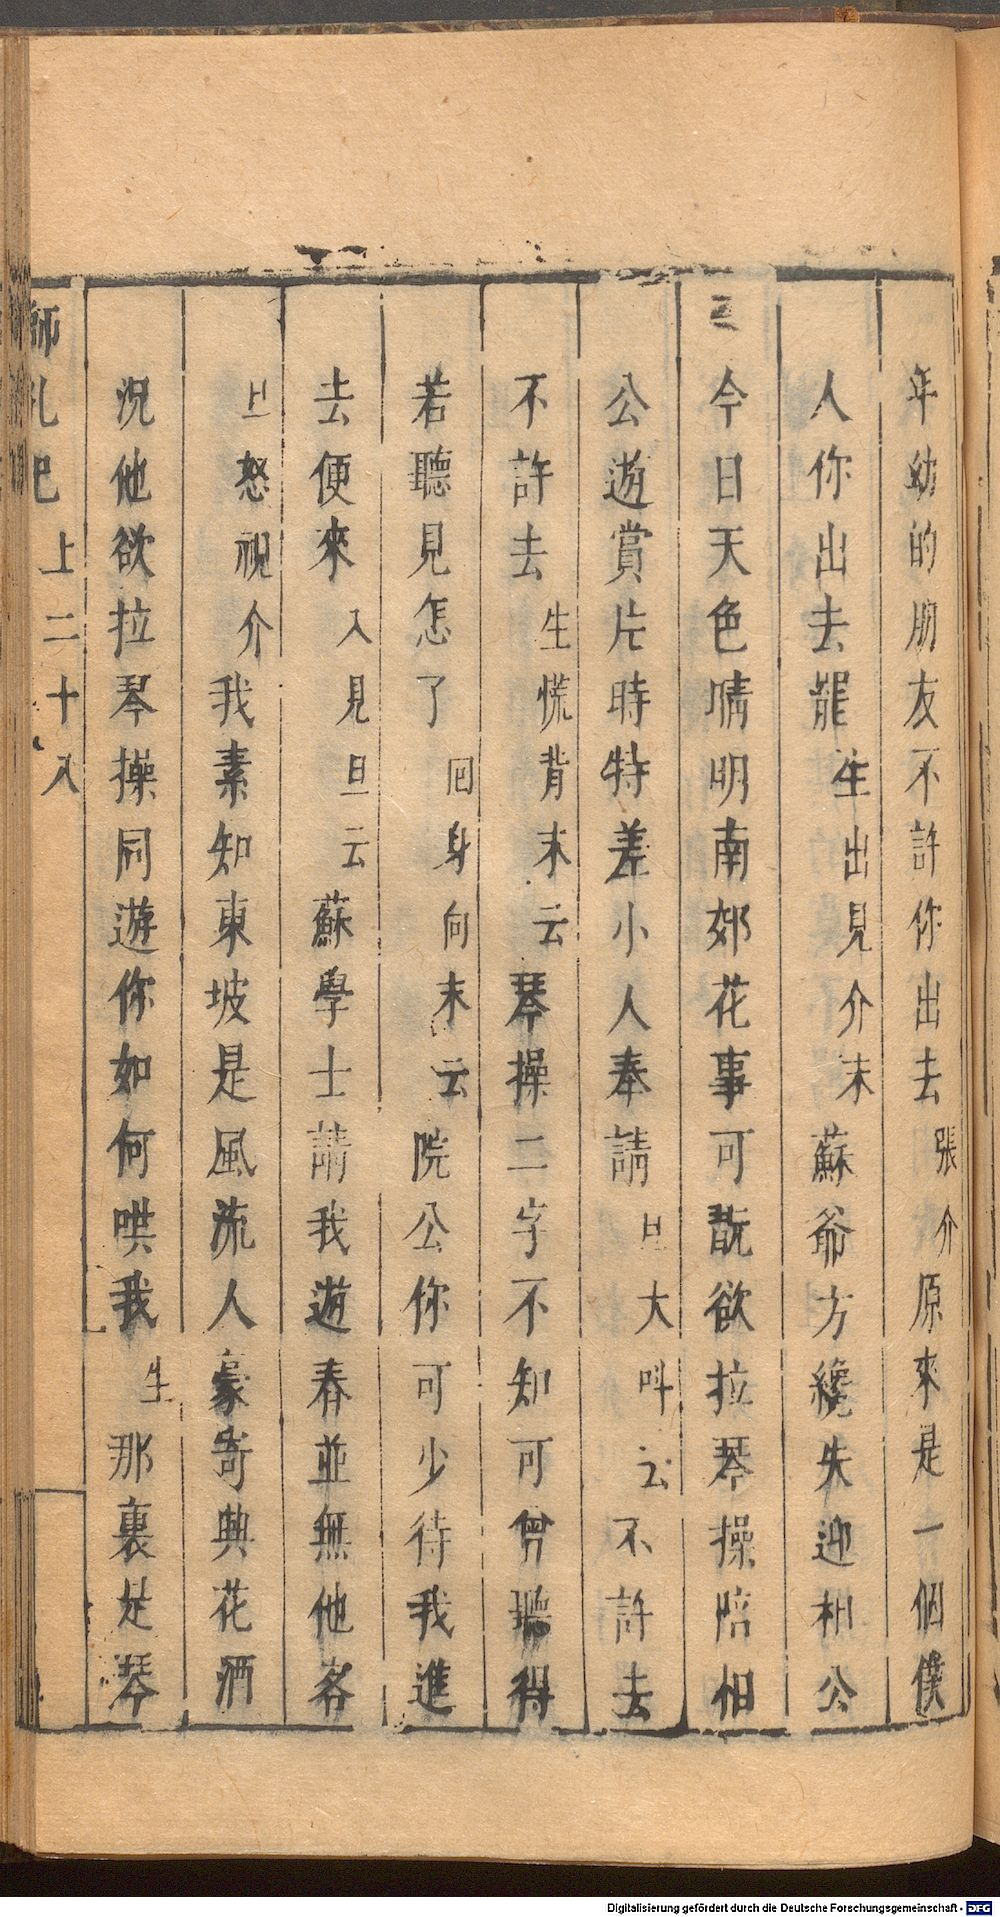 年幼的朋友不許你出去張介原來是一個僕
人你出去罷生出見介末蘇爺方纔失迎相公
今日天色晴明南郊花事可翫欲拉琴操陪相
公遊賞片時特差小人奉請旦大叫云不許去
不許去生慌背末云琴操二字不知可曾聽得
若聽見怎了回身向末云院公你可少待我進
去便來入見旦云蘇學士請我遊春並無他客
旦怒視介我素知東坡是風流人豪寄興花酒
況他欲拉琴操同遊你如何哄我生那裏是琴
師礼巴上二十八
Digitalisierung gefördert durch die Deutsche Forschungsgemeinschaft - DFG